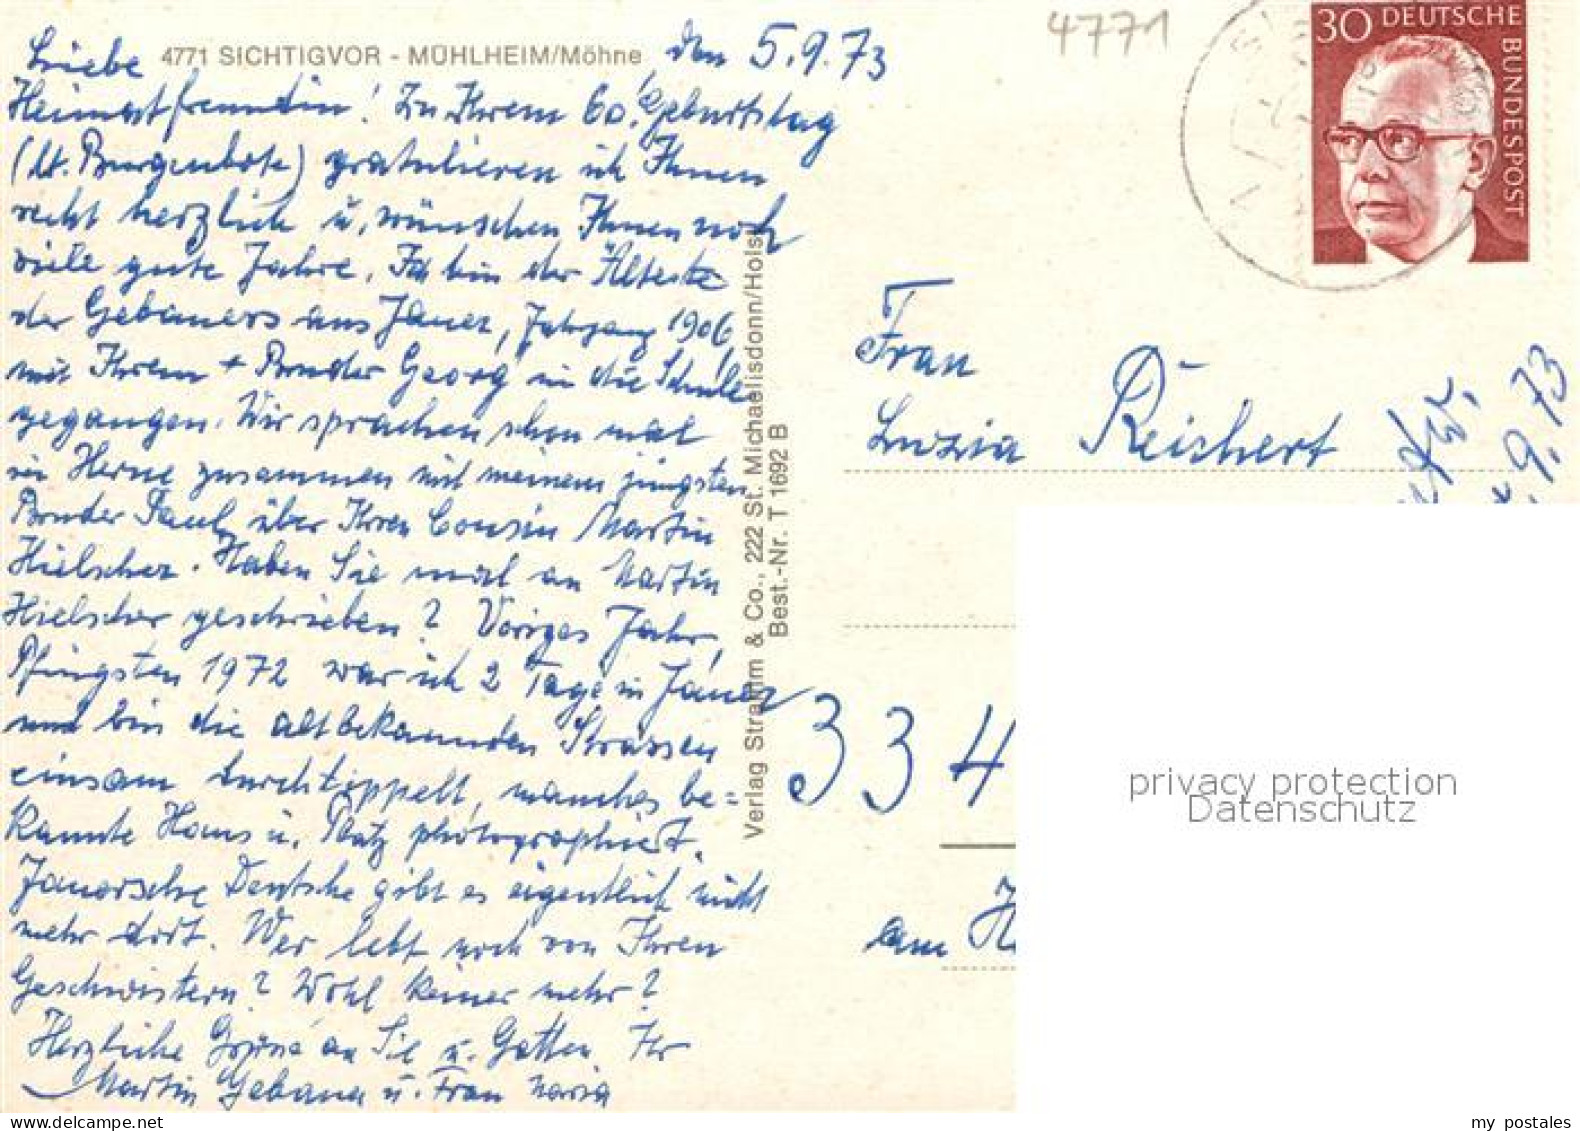 4771 SICHTIGVOR - MÜHLHEIM/Möhne
den 5.9.73
Liebe
Heimatfreundin! Zu Ihrem 60. Geburtstag
(lt. Burgenbote) gratulieren ich Ihnen
recht herzlich u. wünschen Ihnen noch
viele gute Jahre. Ich bin der Älteste
der Gebauers aus Jauer, Jahrgang 1906,
mit Ihrem + Bruder Georg in die Schule
gegangen. Wir sprachen schon mal
in Herne zusammen mit meinem jüngsten
Bruder Paul, über Ihren Cousin Martin
Hielscher. Haben Sie mal an Martin
Hielscher geschrieben? Voriges Jahr,
Pfingsten 1972 war ich 2 Tage in Jauer
und bin die altbekannten Strassen
einsam durchtippelt, manches be=
kannte Haus u. Platz photographiert.
Jauersche Deutsche gibt es eigentlich nicht
mehr dort. Wer lebt noch von Ihren
Geschwistern? Wohl keiner mehr?
Herzliche Grüsse an Sie u. Gatten Ihr
Martin Gebauer u. Frau Maria
Verlag Stramm & Co., 222 St. Michaelisdonn/Holst.
Best.-Nr. T 1692 B
4771
30 DEUTSCHE
BUNDESPOST
Frau
Luzia Reichert
9.73
334
am H
privacy protection
Datenschutz
www.delcampe.net
my postales